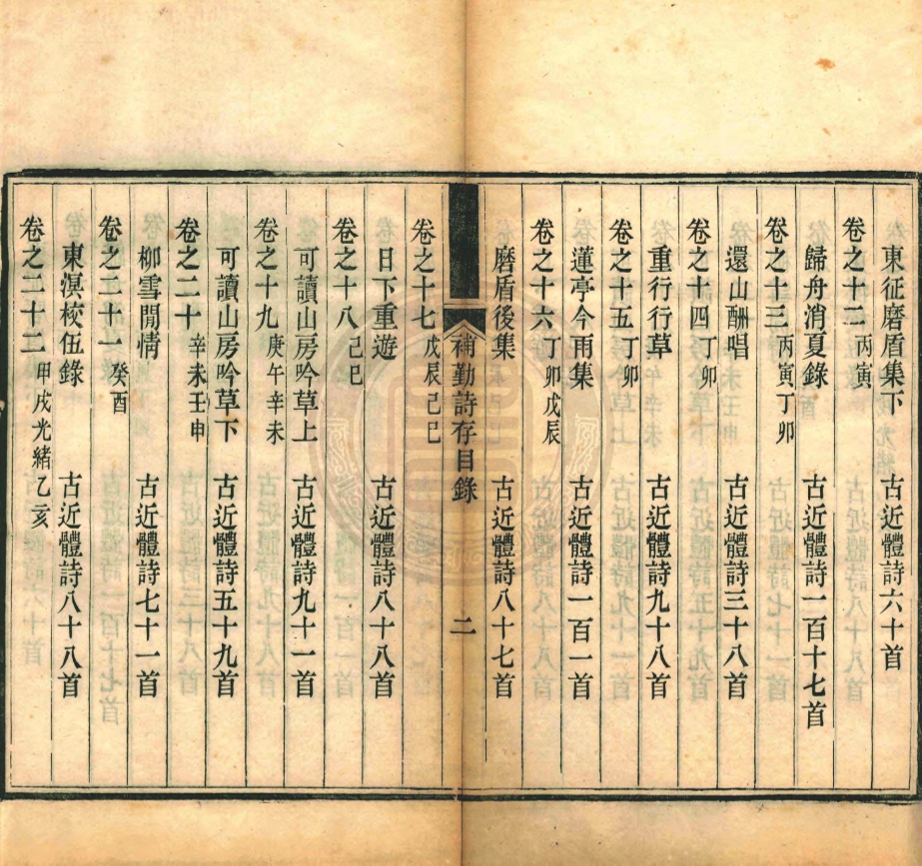 東征磨盾集下 古近體詩六十首
卷之十二 丙寅
歸舟消夏錄 古近體詩一百十七首
卷之十三 丙寅丁卯
還山酬唱 古近體詩三十八首
卷之十四 丁卯
重行行草 古近體詩九十八首
卷之十五 丁卯
蓮亭今雨集 古近體詩一百一首
卷之十六 丁卯戊辰
磨盾後集 古近體詩八十七首
補勤詩存目錄 二
卷之十七 戊辰己巳
日下重遊 古近體詩八十八首
卷之十八 己巳
可讀山房吟草上 古近體詩九十一首
卷之十九 庚午辛未
可讀山房吟草下 古近體詩五十九首
卷之二十 辛未壬申
柳雪閒情 古近體詩七十一首
卷之二十一 癸酉
東溟校伍錄 古近體詩八十八首
卷之二十二 甲戌光緒乙亥